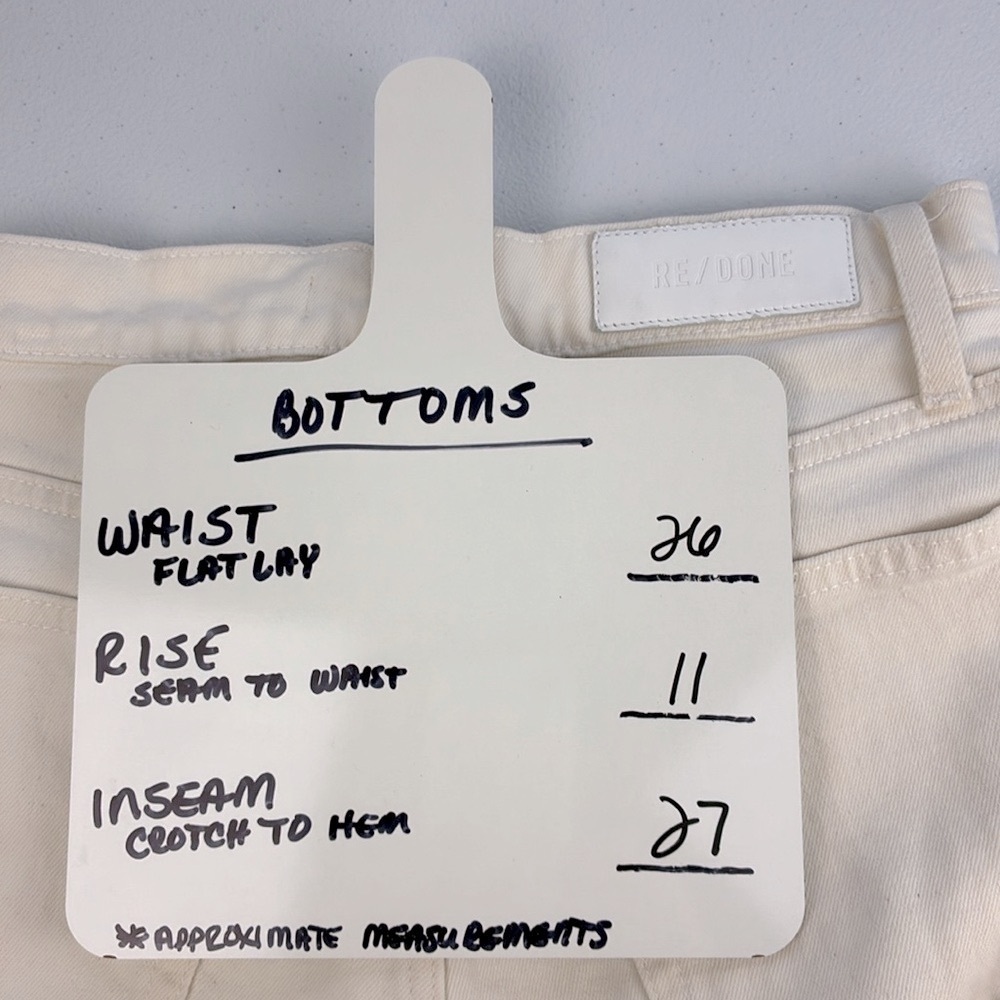 RE/DONE
BOTTOMS
WAIST 26
FLAT LAY
RISE 11
SEAM TO WAIST
INSEAM 27
CROTCH TO HEM
*APPROXIMATE MEASUREMENTS